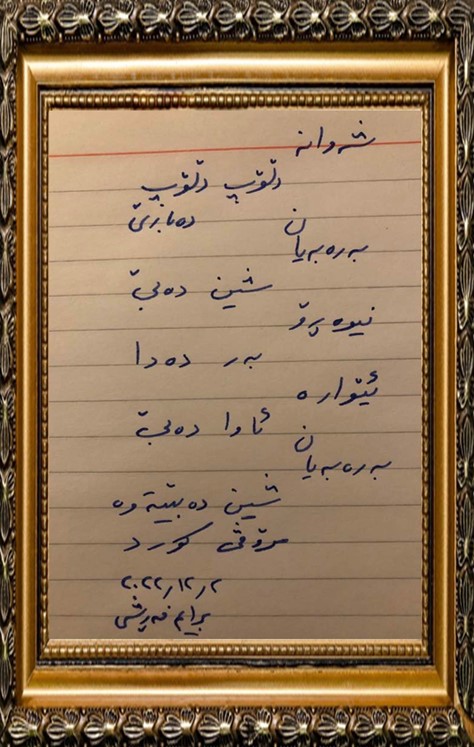 شەوانە
دڵۆپ دڵۆپ
دەبارێ
بەرەبەیان
شین دەبێ
نیوەڕۆ
بەر دەدا
ئێوارە
ئاوا دەبێ
بەرەبەیان
شین دەبێتەوە
مرۆڤی کورد
٢٠٢٢/١٢/٢
برایم فەڕشی